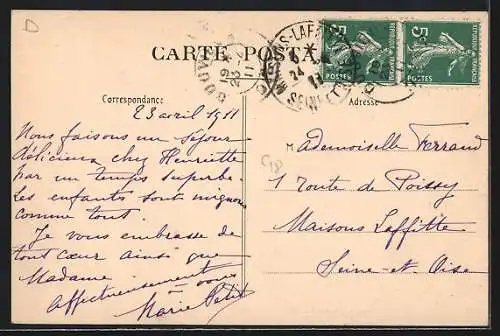 D
CARTE POSTALE
Correspondance
Adresse
MAISONS-LAFFITTE
24
SEINE-ET-OISE
19
23
11
5c
POSTES
5c
POSTES
23 avril 1911
Nous faisons un séjour
délicieux chez Henriette
par un temps superbe.
Les enfants sont mignons
comme tout.
Je vous embrasse de
tout cœur ainsi que
Madame
affectueusement à vous
Marie Petit
Mademoiselle Ferrand
1 route de Poissy
Maisons Laffitte
Seine-et-Oise